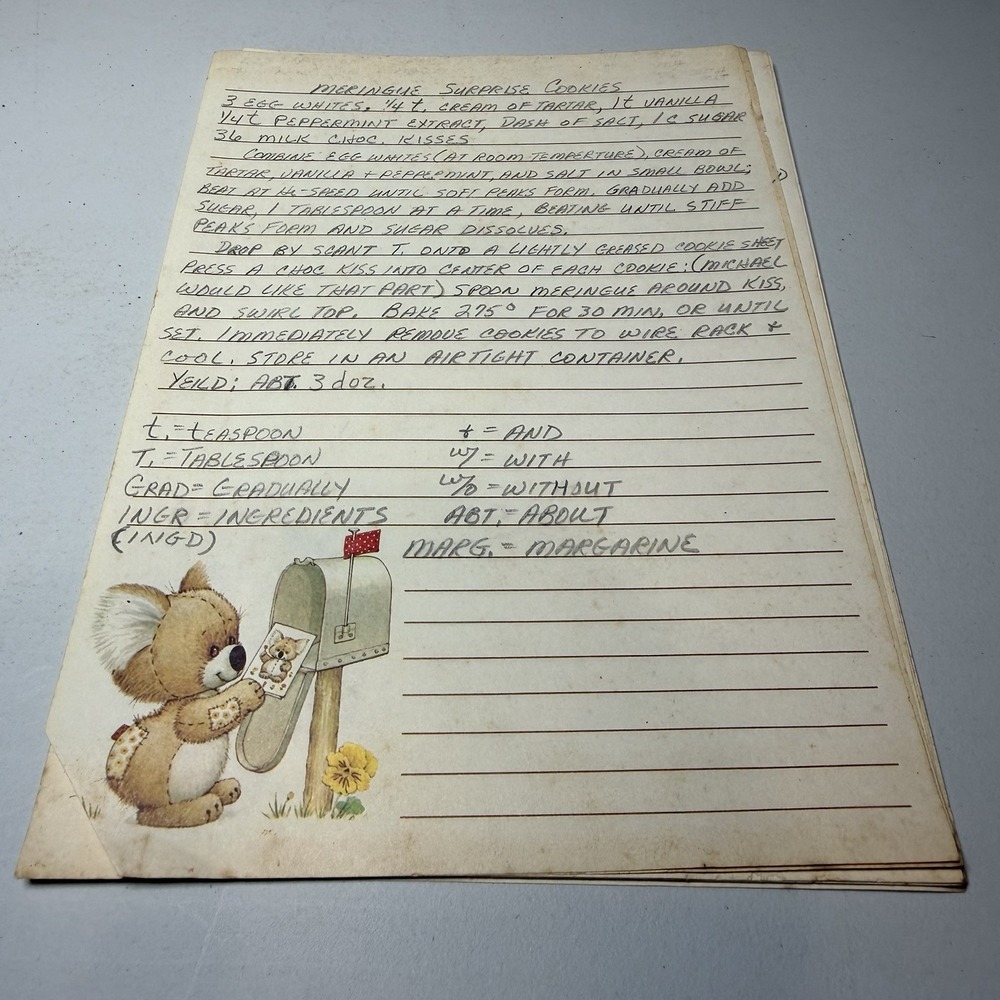 MERINGUE SURPRISE COOKIES
3 EGG WHITES. 1/4 t. CREAM OF TARTAR, 1t VANILLA
1/4 t PEPPERMINT EXTRACT, DASH OF SALT, 1 C SUGAR
36 MILK CHOC. KISSES
COMBINE EGG WHITES (AT ROOM TEMPERTURE), CREAM OF
TARTAR, VANILLA + PEPPERMINT, AND SALT IN SMALL BOWL;
BEAT AT HI-SPEED UNTIL SOFT PEAKS FORM. GRADUALLY ADD
SUGAR, 1 TABLESPOON AT A TIME, BEATING UNTIL STIFF
PEAKS FORM AND SUGAR DISSOLVES.
DROP BY SCANT T. ONTO A LIGHTLY GREASED COOKIE SHEET
PRESS A CHOC KISS INTO CENTER OF EACH COOKIE; (MICHAEL
WOULD LIKE THAT PART) SPOON MERINGUE AROUND KISS,
AND SWIRL TOP. BAKE 275° FOR 30 MIN. OR UNTIL
SET. IMMEDIATELY REMOVE COOKIES TO WIRE RACK +
COOL. STORE IN AN AIRTIGHT CONTAINER.
YEILD; ABT. 3 doz.
t. = tEASPOON + = AND
T. = TABLESPOON w/ = WITH
GRAD = GRADUALLY w/o = WITHOUT
INGR = INGREDIENTS ABT. = ABOUT
(INGD) MARG. = MARGARINE